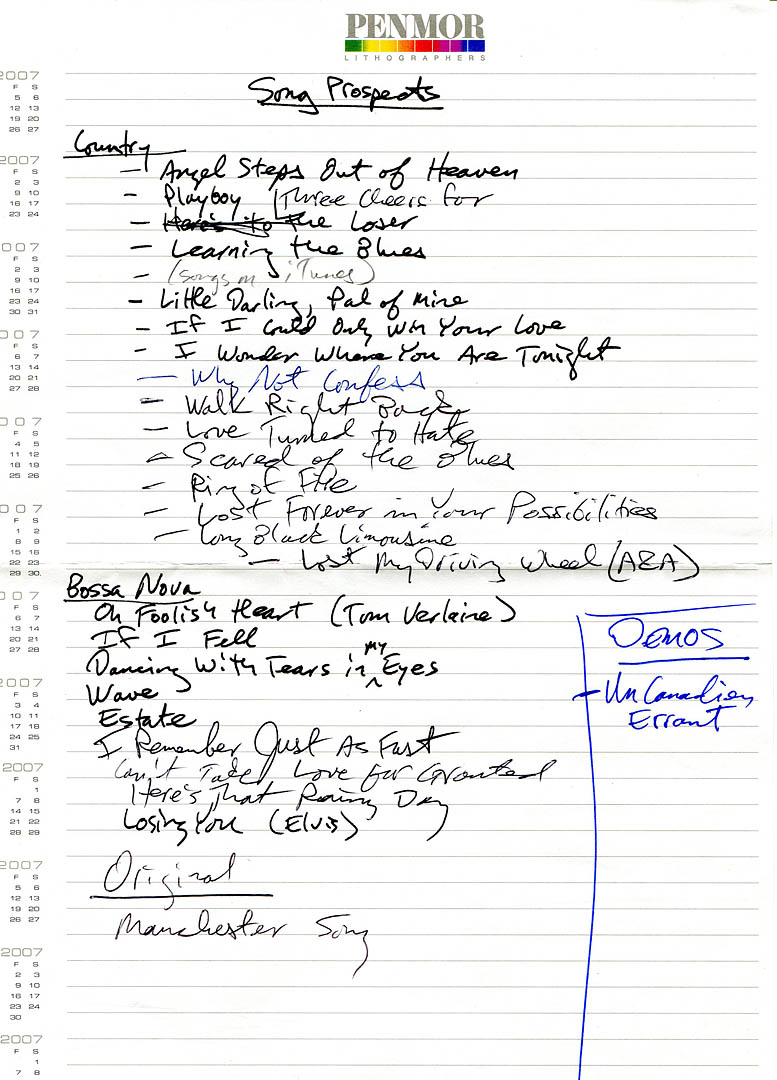 PENMOR
LITHOGRAPHERS
Song Prospects
Country
- Angel Steps Out of Heaven
- Playboy Three Cheers for
- Here's to the Loser
- Learning the Blues
- (songs on iTunes)
- Little Darling, Pal of Mine
- If I Could Only Win Your Love
- I Wonder Where You Are Tonight
- Why Not Confess
- Walk Right Back
- Love Turned to Hate
- Scared of the Blues
- Ring of Fire
- Lost Forever in Your Possibilities
- Long Black Limousine
- Lost My Driving Wheel (A&A)
Bossa Nova
Oh Foolish Heart (Tom Verlaine)
If I Fell
Dancing With Tears in my Eyes
Wave
Estate
I Remember Just As Fast
Can't Take Love for Granted
Here's That Rainy Day
Losing You (Elvis)
Original
Manchester Song
Demos
- Un Canadien
Errant
2007
F S
5 6
12 13
19 20
26 27
2007
F S
2 3
9 10
16 17
23 24
007
F S
2 3
9 10
16 17
23 24
30 31
007
F S
6 7
13 14
20 21
27 28
007
F S
4 5
11 12
18 19
25 26
007
F S
1 2
8 9
15 16
22 23
29 30
007
F S
6 7
13 14
20 21
27 28
2007
F S
3 4
10 11
17 18
24 25
31
2007
F S
1
7 8
14 15
21 22
28 29
2007
F S
5 6
12 13
19 20
26 27
2007
F S
2 3
9 10
16 17
23 24
30
2007
F S
1
7 8